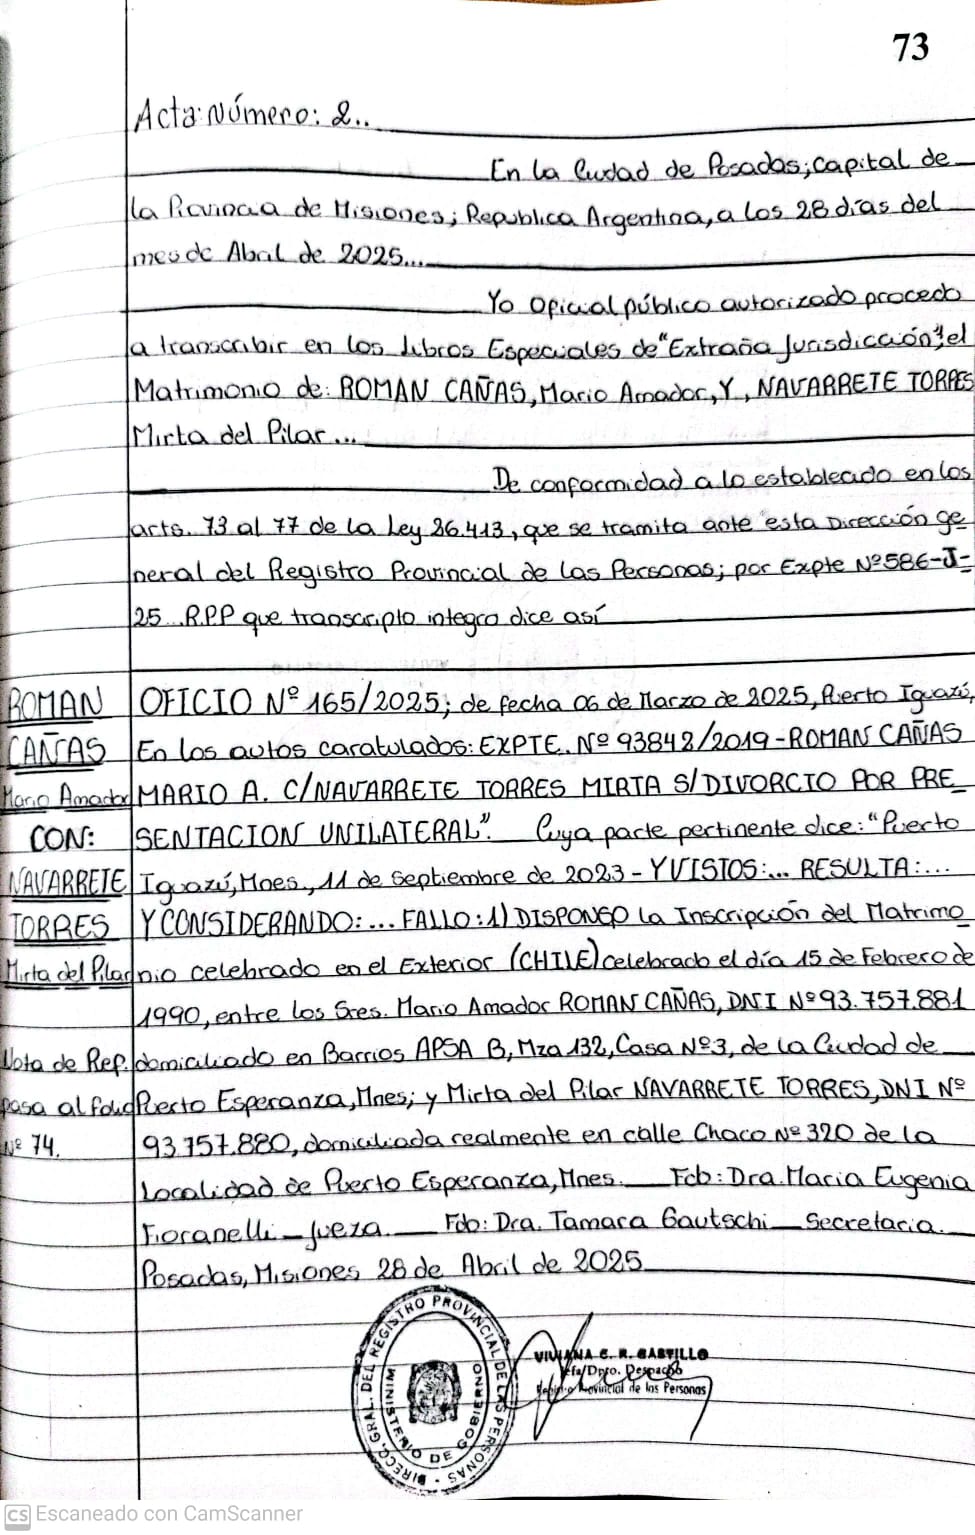 73
Acta Número: 2..
En la Ciudad de Posadas; capital de
la Provincia de Misiones; Republica Argentina, a los 28 días del
mes de Abril de 2025...
Yo Oficial público autorizado procedo
a transcribir en los Libros Especiales de "Extraña Jurisdicción"; el
Matrimonio de: ROMAN CAÑAS, Mario Amador, Y, NAVARRETE TORRES
Mirta del Pilar...
De conformidad a lo establecido en los
arts. 73 al 77 de la Ley 26.413, que se tramita ante esta Dirección ge
neral del Registro Provincial de las Personas; por Expte Nº 586-J-
25...R.P.P que transcripto integra dice así
OFICIO Nº 165/2025; de fecha 06 de Marzo de 2025, Puerto Iguazú,
En los autos caratulados: EXPTE. Nº 93842/2019 - ROMAN CAÑAS
MARIO A. C/NAVARRETE TORRES MIRTA S/DIVORCIO POR PRE
SENTACION UNILATERAL". Cuya parte pertinente dice: "Puerto
Iguazú, Mnes., 11 de septiembre de 2023 - Y VISTOS:... RESULTA:...
Y CONSIDERANDO:... FALLO: 1) DISPONGO la Inscripción del Matrimo
nio celebrado en el Exterior (CHILE) celebrado el día 15 de Febrero de
1990, entre los Sres. Mario Amador ROMAN CAÑAS, DNI Nº 93.757.881
domiciliado en Barrios APSA B, Mza 132, Casa Nº 3, de la Ciudad de
Puerto Esperanza, Mnes; y Mirta del Pilar NAVARRETE TORRES, DNI Nº
93.757.880, domiciliada realmente en calle Chaco Nº 320 de la
Localidad de Puerto Esperanza, Mnes. Fdo: Dra. Maria Eugenia
Fioranelli - Jueza. Fdo: Dra. Tamara Gautschi Secretaria.
Posadas, Misiones 28 de Abril de 2025
ROMAN
CAÑAS
Mario Amador
CON:
NAVARRETE
TORRES
Mirta del Pilar
Nota de Ref.
pasa al folio
Nº 74.
DIRECC. GRAL. DEL REGISTRO PROVINCIAL DE LAS PERSONAS
MINISTERIO DE GOBIERNO
VIVIANA C. R. CASTILLO
Jefa/Dpto. Despacho
Registro Provincial de las Personas
CS Escaneado con CamScanner